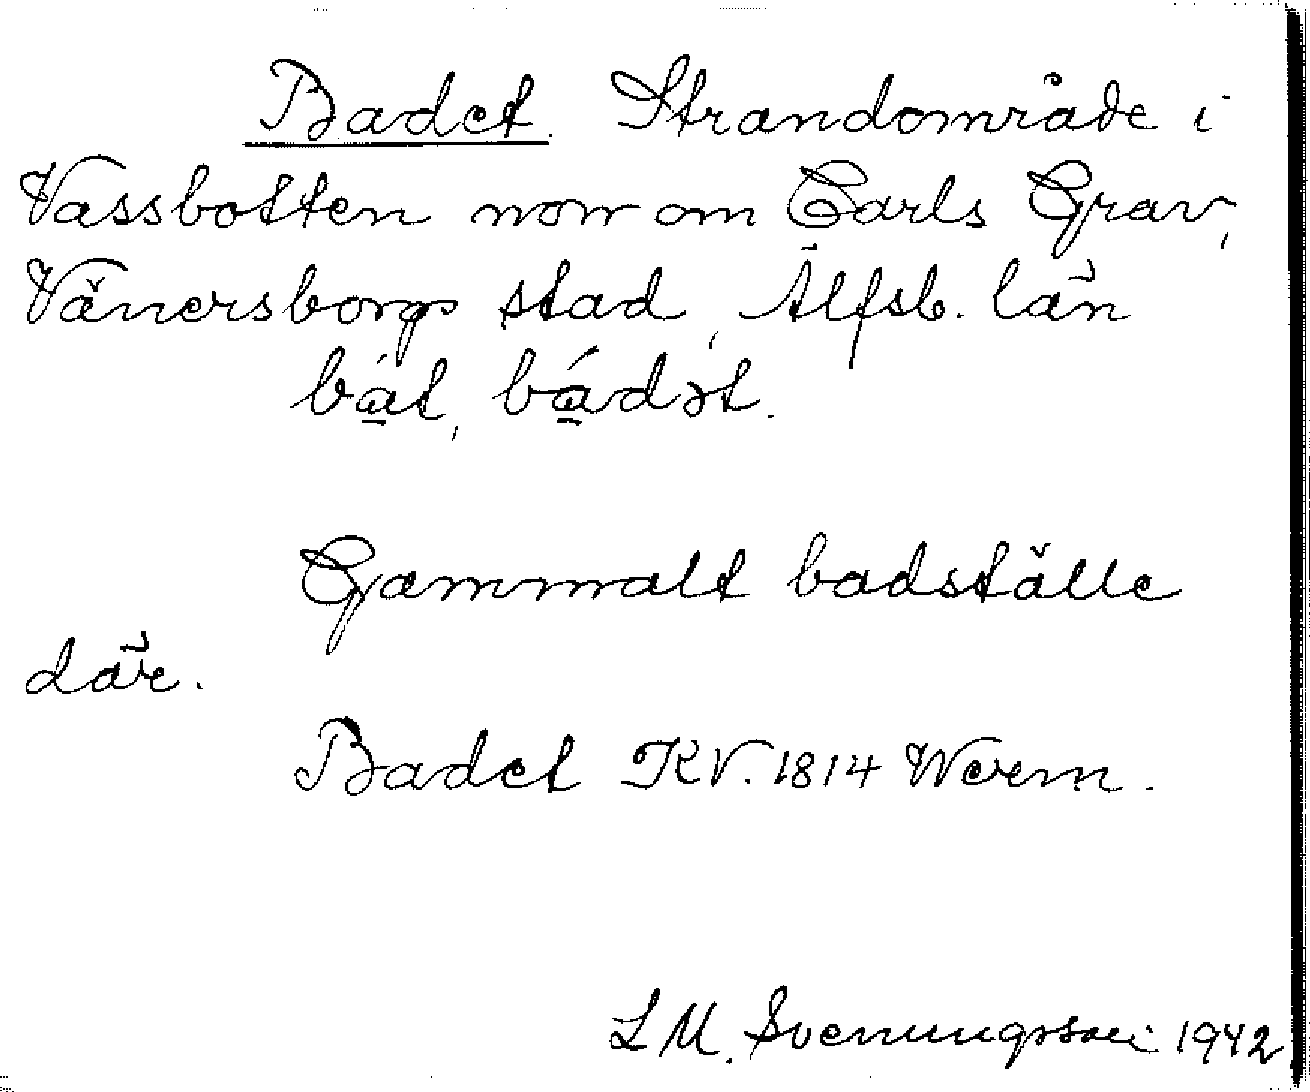 Badet. Strandområde i
Vassbotten norr om Carls Grav,
Vänersborgs stad, Älfsb. län
bá̱t, bá̱dət.
Gammalt badställe
där.
Badet KV. 1814 Werm.
L M. Svenungsson 1942